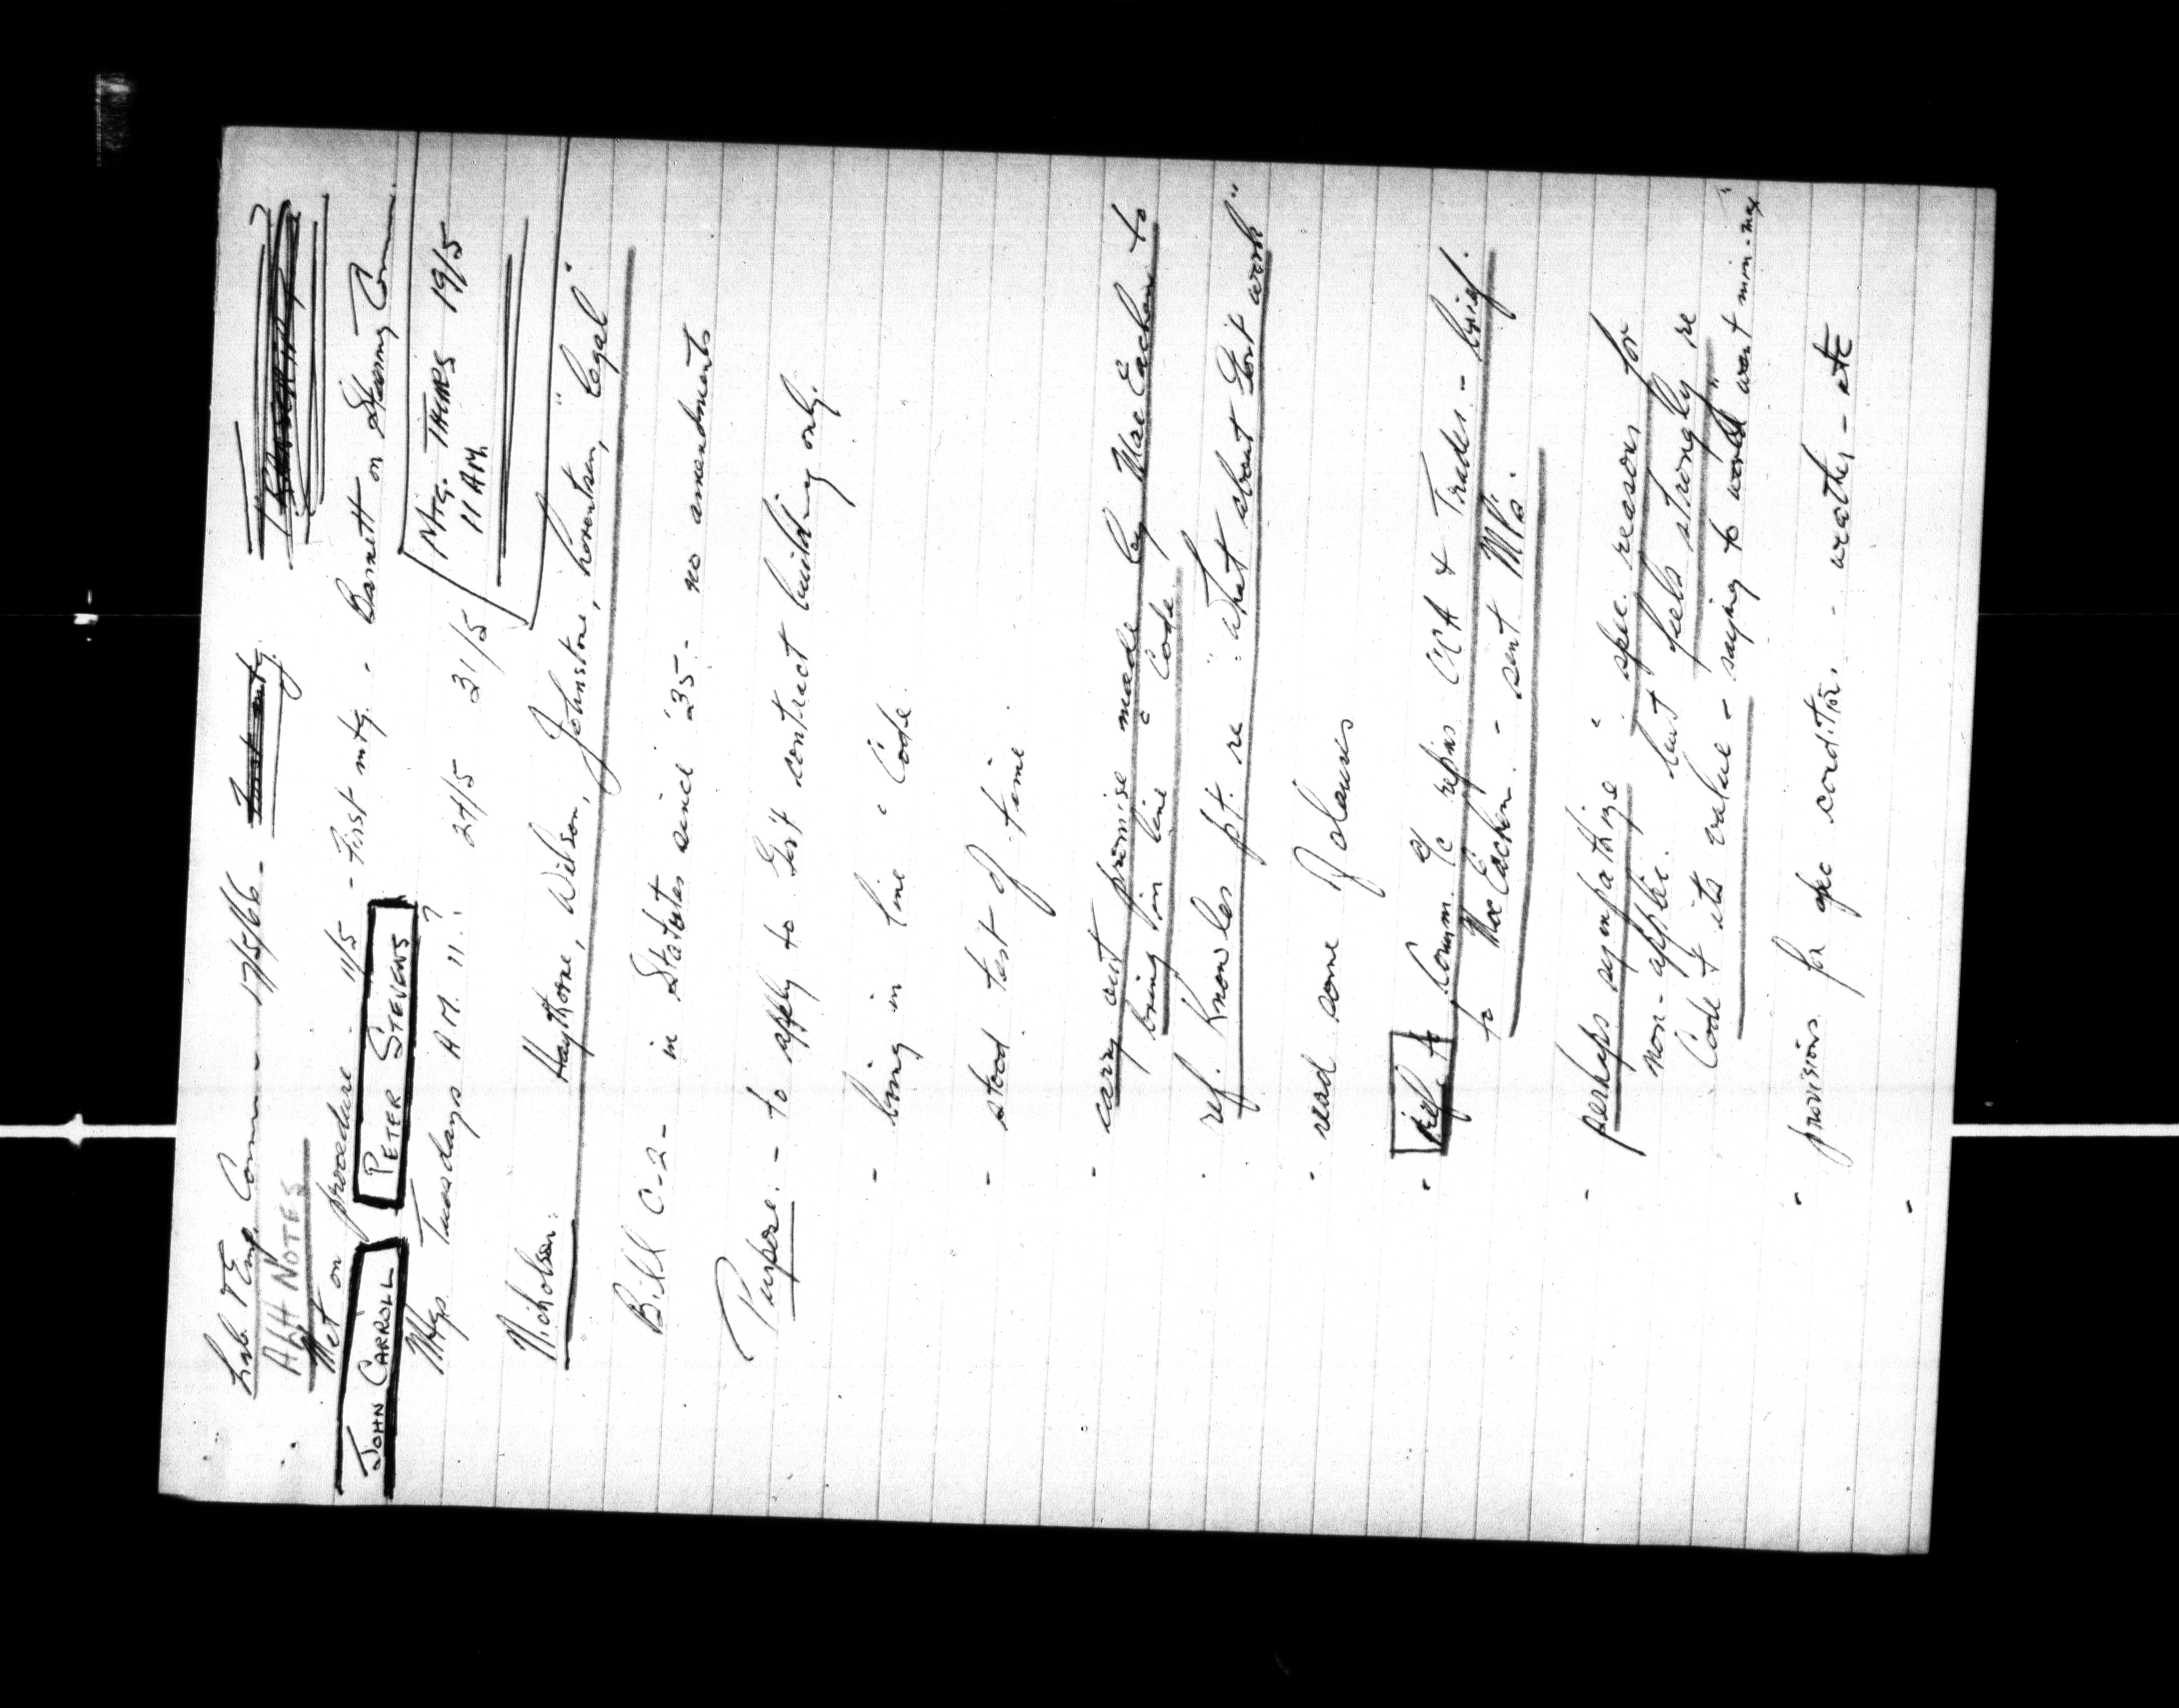 Lab. & Emp. Comm - 17/5/66 - First mtg.
AGH NOTES
Met on procedure - 11/5 - First mtg. - Barnett on Steering Comm.
JOHN CARROLL PETER STEVENS
Mtgs. Tuesdays A M. 11? 24/5 31/5 MTG. THURS 19/5
11 AM.
Nicholson: Haythorne, Wilson, Johnstone, Lorentsen, "legal"
Bill C-2 - in Statutes since '35 - no amendments
Purpose: - to apply to Gov't contract building only.
- bring in line c̄ Code.
- stood test of time.
- carry out promise made by MacEachen to
bring in line c̄ Code.
- ref. Knowles pt. re "what about Gov't work"
- read some of clauses
- ref to Comm. of CCA & Trades - brief.
to MacEachen - sent MPs.
- perhaps sympathize c̄ spec. reasons for
non-applic. but feels strongly re
Code & its value - saying to world want min-max
- provisions for spec condition. - weather - etc
-